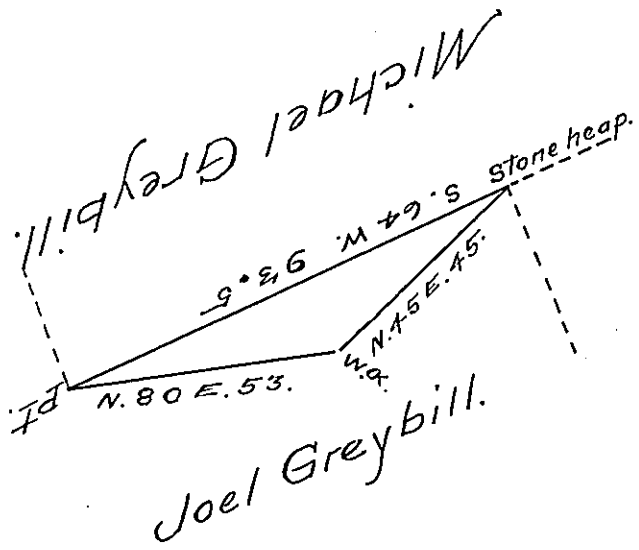 Michael Greybill.
Stone heap.
S. 64 W. 93.5
N. 45 E. 45.
W.o.
N. 80 E. 53.
Pt.
Joel Greybill.